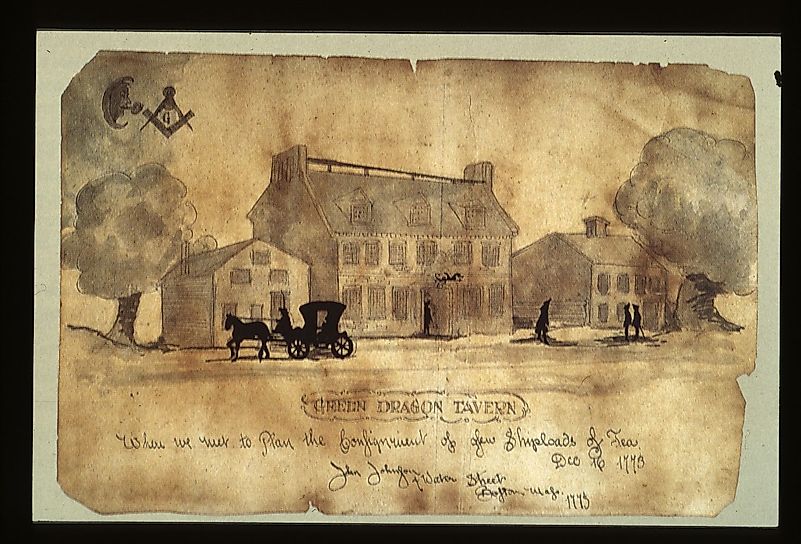 G
GREEN DRAGON TAVERN
When we met to Plan the Consignment of few Shiploads of Tea
Dec 16 1773
John Johnson
4 Water Street
Boston Mass. 1773